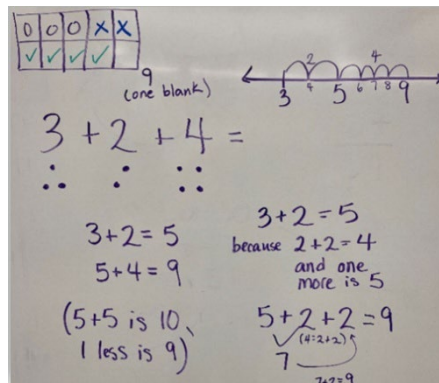 O O O X X
✓ ✓ ✓ ✓
9
(one blank)
2 4
3 4 5 6 7 8 9
3 + 2 + 4 =
3+2 = 5
5+4 = 9
(5+5 is 10,
1 less is 9)
3+2 = 5
because 2+2=4
and one
more is 5
5+2+2=9
(4=2+2)
7
7+2=9